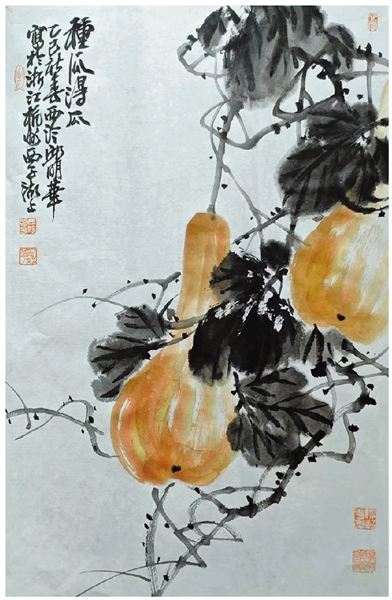 種瓜得瓜
乙巳春西泠明華
寫於浙江杭州西子湖上